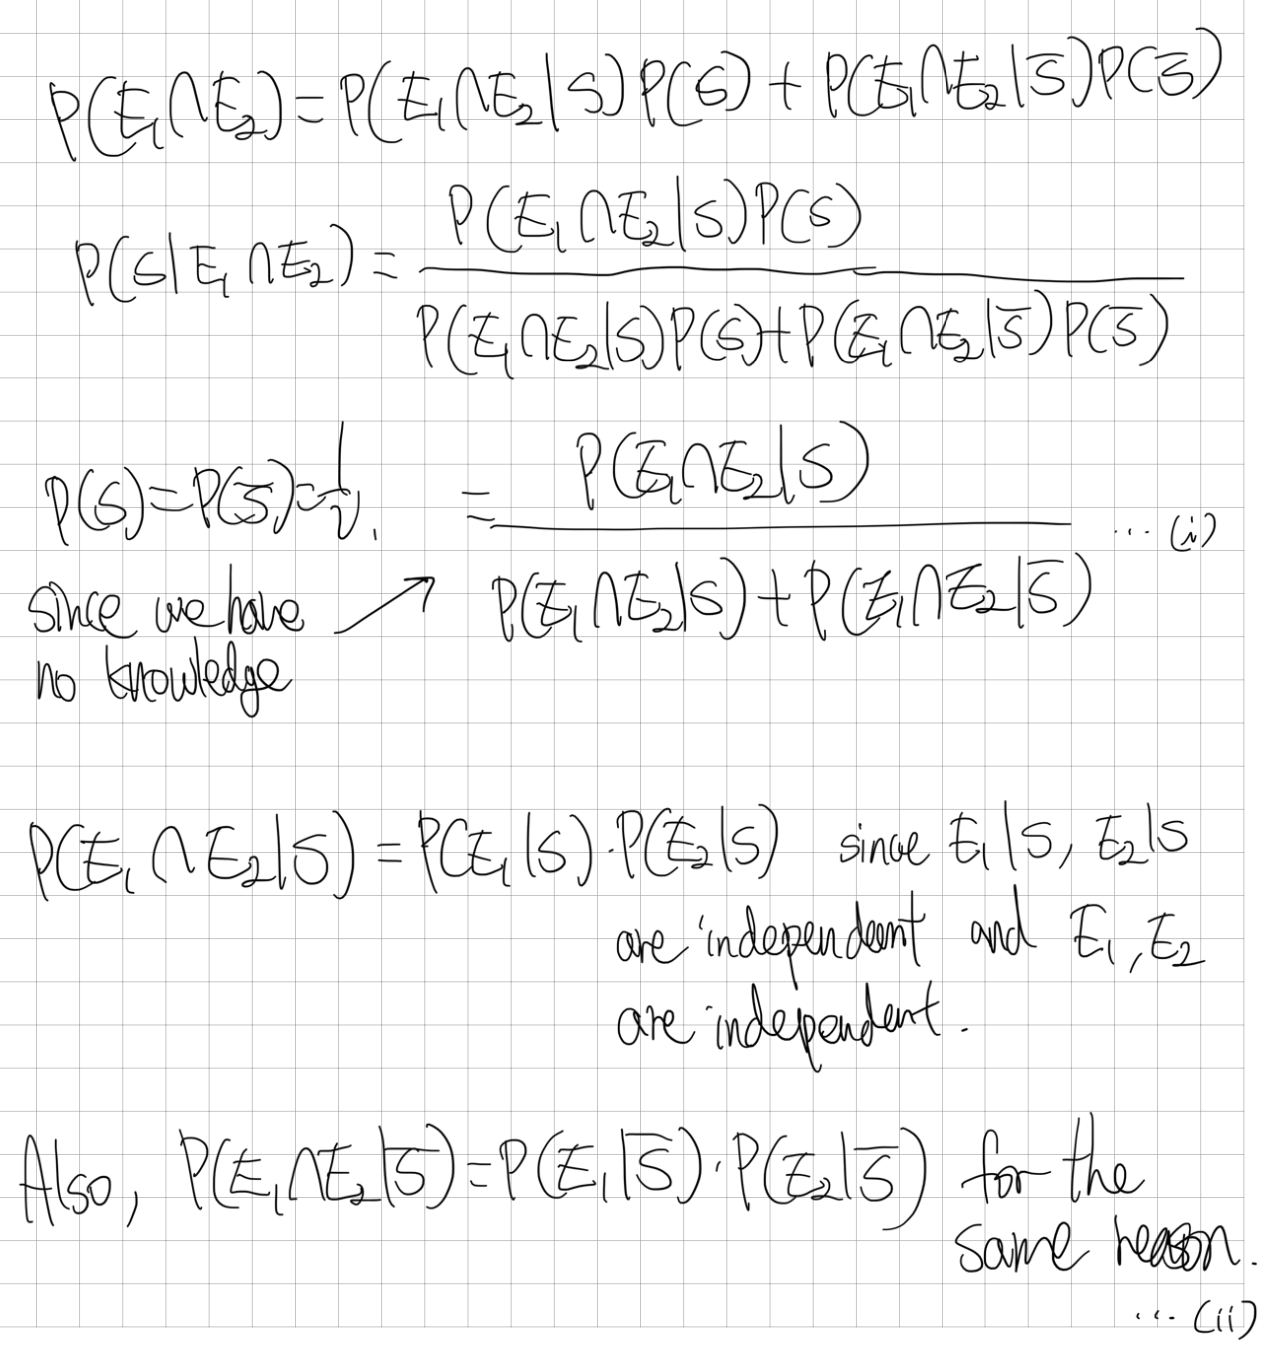 P(E₁∩E₂)=P(E₁∩E₂|S)P(S)+P(E₁∩E₂|S̅)P(S̅)
P(S|E₁∩E₂)= P(E₁∩E₂|S)P(S)
P(E₁∩E₂|S)P(S)+P(E₁∩E₂|S̅)P(S̅)
P(S)=P(S̅)=½, = P(E₁∩E₂|S) ... (i)
since we have P(E₁∩E₂|S)+P(E₁∩E₂|S̅)
no knowledge
P(E₁∩E₂|S)=P(E₁|S)·P(E₂|S) since E₁|S, E₂|S
are independent and E₁, E₂
are independent.
Also, P(E₁∩E₂|S̅)=P(E₁|S̅)·P(E₂|S̅) for the
same reason.
... (ii)